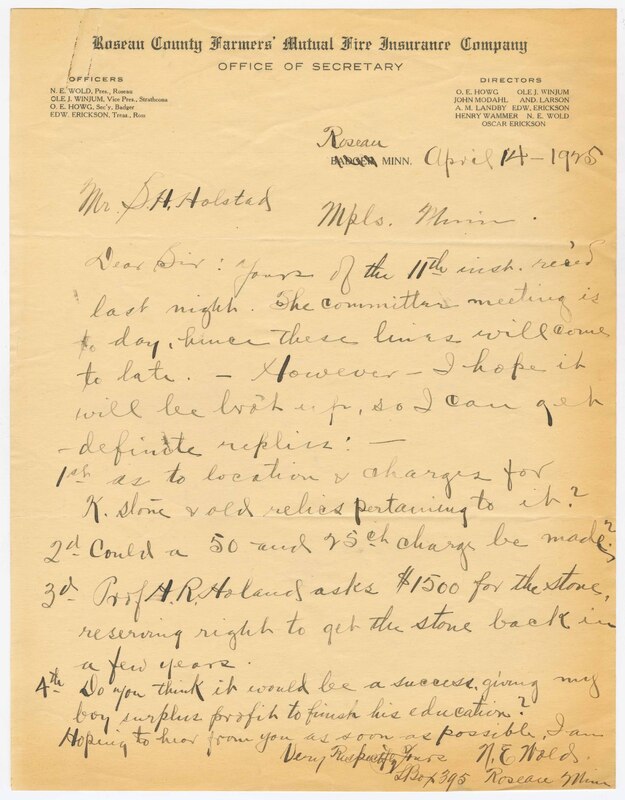 Roseau County Farmers' Mutual Fire Insurance Company
OFFICE OF SECRETARY
OFFICERS
N. E. WOLD, Pres., Roseau
OLE J. WINJUM, Vice Pres., Strathcona
O. E. HOWG, Sec'y, Badger
EDW. ERICKSON, Treas., Ross
DIRECTORS
O. E. HOWG OLE J. WINJUM
JOHN MODAHL AND. LARSON
A. M. LANDBY EDW. ERICKSON
HENRY WAMMER N. E. WOLD
OSCAR ERICKSON
Roseau
BADGER, MINN. April 14 - 1925
Mr. S. H. Holstad
Mpls. Minn.
Dear Sir: Yours of the 11th inst. rec'ed
last night. The committee meeting is
to day, hence these lines will come
to late. - However - I hope it
will be bro't up, so I can get
definite replies: -
1st as to location & charges for
K. stone & old relics pertaining to it?
2d Could a 50 and 25 ct charge be made?
3d Prof H. R. Holand asks $1500 for the stone,
reserving right to get the stone back in
a few years.
4th Do you think it would be a success, giving my
boy surplus profit to finish his education?
Hoping to hear from you as soon as possible, I am
Very Respectfly Yours N. E. Wold.
L Box 395 Roseau Minn